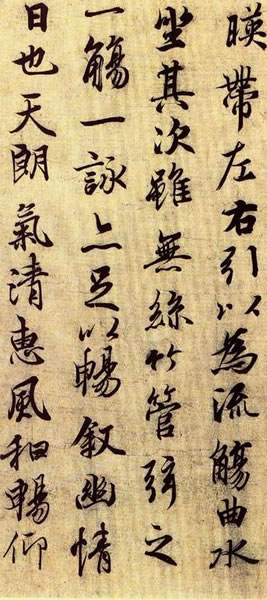 暎帶左右引以為流觴曲水
坐其次雖無絲竹管弦之
一觴一詠亦足以暢敘幽情
日也天朗氣清惠風和暢仰